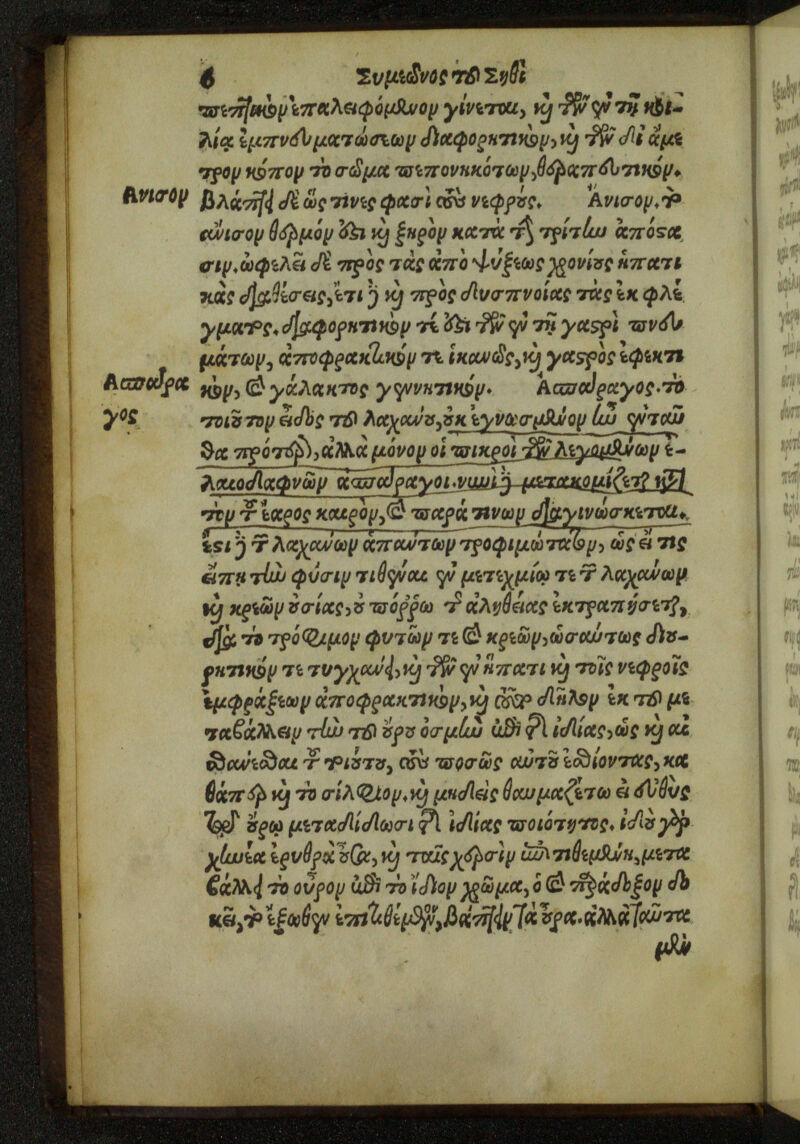 6 Συμεῶνος τοῦ Σηθὶ
πεπτικὸν ἐπαλειφόμενον γίνεται, καὶ τῶν ἐν τῇ κοι-
λίᾳ ἐμπνευματώσεων διαφορητικὸν, καὶ τῶν δι' ἀμε
τρον κόπον τὸ σῶμα πεπονηκότων, θεραπευτικὸν.
Ανισον βλάπτει δὲ ὥς τινες φασὶ τοὺς νεφρούς. Άνισον. τὸ
ἄνισον θερμόν ἐστι καὶ ξηρὸν κατὰ τὴν τρίτην ἀπόστα
σιν. ὠφελεῖ δὲ πρὸς τὰς ἀπὸ ψύξεως χρονίους ἡπατι
κὰς διαθέσεις, ἔτι δὲ καὶ πρὸς δυσπνοίας τὰς ἐκ φλέ
γματος. διαφορητικὸν τέ ἐστι τῶν ἐν τῇ γαστρὶ πνευ
μάτων, ἀποφρακτικὸν τε ἱκανῶς, καὶ γαστρὸς ἐφεκτι
Ασπάρα κὸν, καὶ γάλακτος γεννητικὸν. Ἀσπάραγος. τὸ
γος τοιοῦτον εἶδος τοῦ λαχάνου, οὐκ ἐγνωσμένον ἦν ἐνταῦ
θα πρότερον, ἀλλὰ μόνον οἱ πικροὶ τῶν λεγομένων ἐ-
λαιοδαφνῶν ἀσπάραγοι. νυνὶ δὲ μετακομίζεται κατὰ
τὸν τοῦ ἔαρος καιρὸν, καὶ παρά τινων διαγινώσκεται.
ἔστι δὲ τῶν λαχάνων ἁπάντων τροφιμώτατον, ὡς εἴ τις
εἴπῃ τὴν φύσιν τιθέναι ἐν μετεχμίῳ τε τῶν λαχάνων
καὶ κρεῶν οὐσίας, οὐ πόρρω τῆς ἀληθείας ἐκτραπήσεται,
διὰ τὸ τρόφιμον φυτῶν τε καὶ κρεῶν, ὡσαύτως διου-
ρητικὸν τε τυγχάνει, καὶ τῶν ἐν ἥπατι καὶ τοῖς νεφροῖς
ἐμφράξεων ἀποφρακτικὸν, καὶ τοῦτο δῆλον ἐκ τοῦ με
ταβάλλειν τὴν τοῦ οὔρου ὀσμὴν ἐπὶ τῆς ἰδίας, ὡς καὶ αἰ
σθάνεσθαι τοῦ τοιούτου, τοὺς αὐτοῦ ἐσθίοντας, κα
θάπερ καὶ τὸ σίλφιον. καὶ μηδεὶς θαυμαζέτω εἰ εὐθὺς
οὔρῳ μεταδίδωσι τῆς ἰδίας ποιότητος. ἰδοὺ γὰρ
ἐρυθρὰ οὖσα, καὶ ταῖς χερσὶν ἐπιτιθεμένη, μετα
βάλλει τὸ οὖρον ἐπὶ τὸ ἴδιον χρῶμα, ὃ καὶ παράδοξον δο
κεῖ, τὸ ἔξωθεν ἐπιτιθέμενον, βάπτειν τὰ οὖρα. ἀλλὰ ταῦτα
μὲν